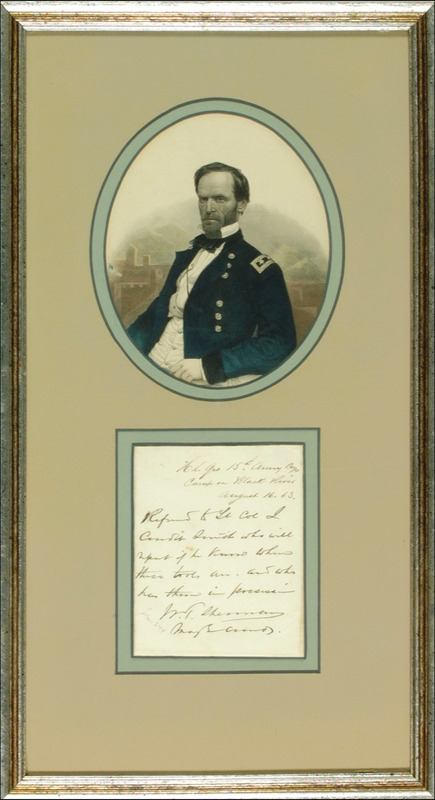 Hd. Qrs 15th Army Corps
Camp on Black River
August 16. 63.
Refered to Lt Col J
Condit Smith who will
report if he knows where
these tools are. and who
has them in possession
W. T. Sherman
Maj Genl Comdg.